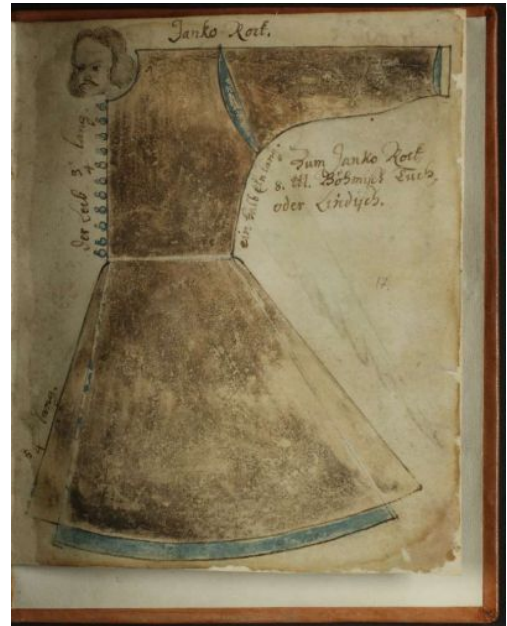 Janko Rock.
der Leib 3/4 lang.
ein halb Eln lang.
Zum Janko Rock,
8. Ell. Böhmisch Tuch,
oder Lindisch.
17.
5/4 lang.